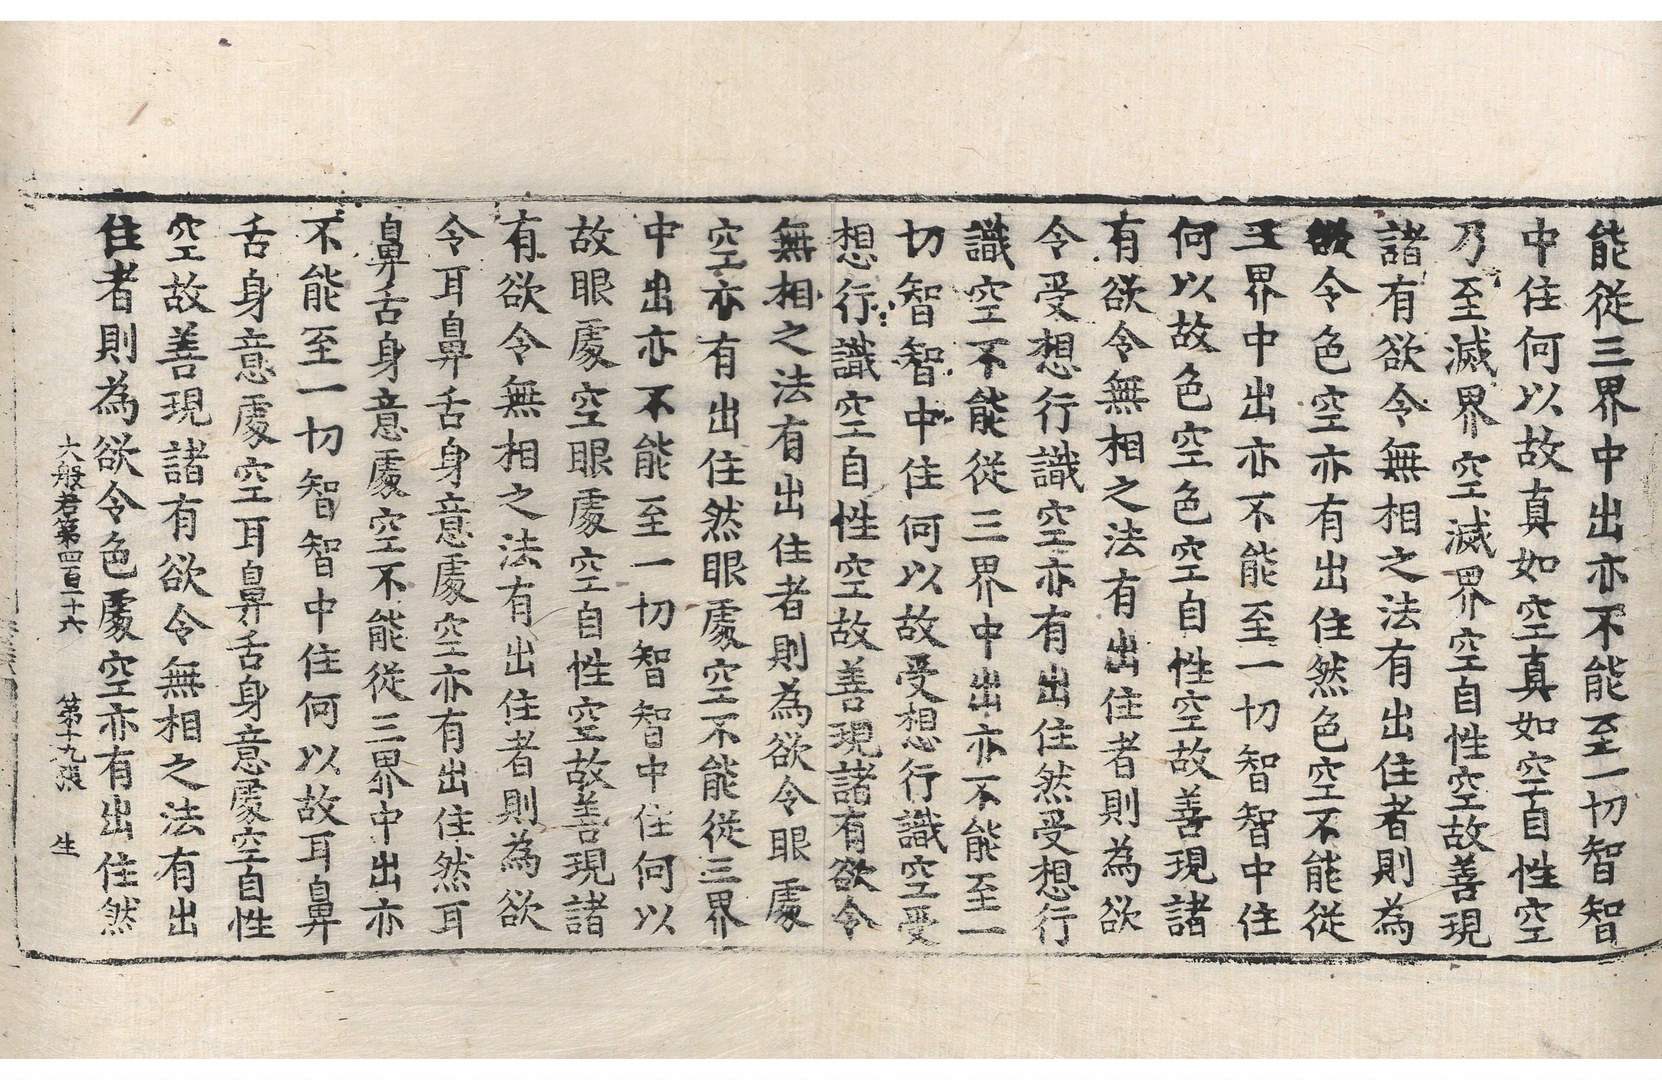 能從三界中出亦不能至一切智智
中住何以故真如空真如空自性空
乃至滅界空滅界空自性空故善現
諸有欲令無相之法有出住者則為
欲令色空亦有出住然色空不能從
三界中出亦不能至一切智智中住
何以故色空色空自性空故善現諸
有欲令無相之法有出住者則為欲
令受想行識空亦有出住然受想行
識空不能從三界中出亦不能至一
切智智中住何以故受想行識空受
想行識空自性空故善現諸有欲令
無相之法有出住者則為欲令眼處
空亦有出住然眼處空不能從三界
中出亦不能至一切智智中住何以
故眼處空眼處空自性空故善現諸
有欲令無相之法有出住者則為欲
令耳鼻舌身意處空亦有出住然耳
鼻舌身意處空不能從三界中出亦
不能至一切智智中住何以故耳鼻
舌身意處空耳鼻舌身意處空自性
空故善現諸有欲令無相之法有出
住者則為欲令色處空亦有出住然
大般若第四百十六 第十九張 生